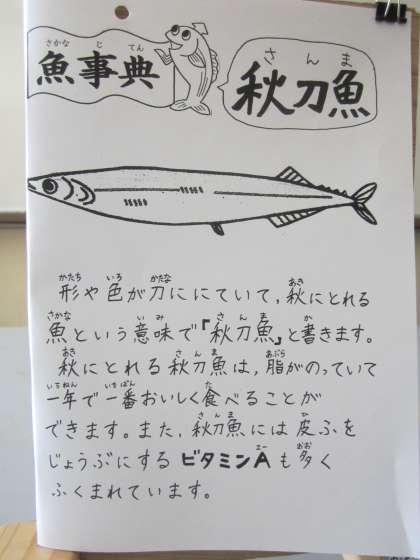 魚事典
さかなじてん
秋刀魚
さんま
かたち いろ かたな あき
形や色が刀ににていて，秋にとれる
さかな いみ さんま か
魚という意味で「秋刀魚」と書きます。
あき さんま あぶら
秋にとれる秋刀魚は，脂がのっていて
いちねん いちばん た
一年で一番おいしく食べることが
さんま ひ
できます。また，秋刀魚には皮ふを
エー おお
じょうぶにするビタミンAも多く
ふくまれています。